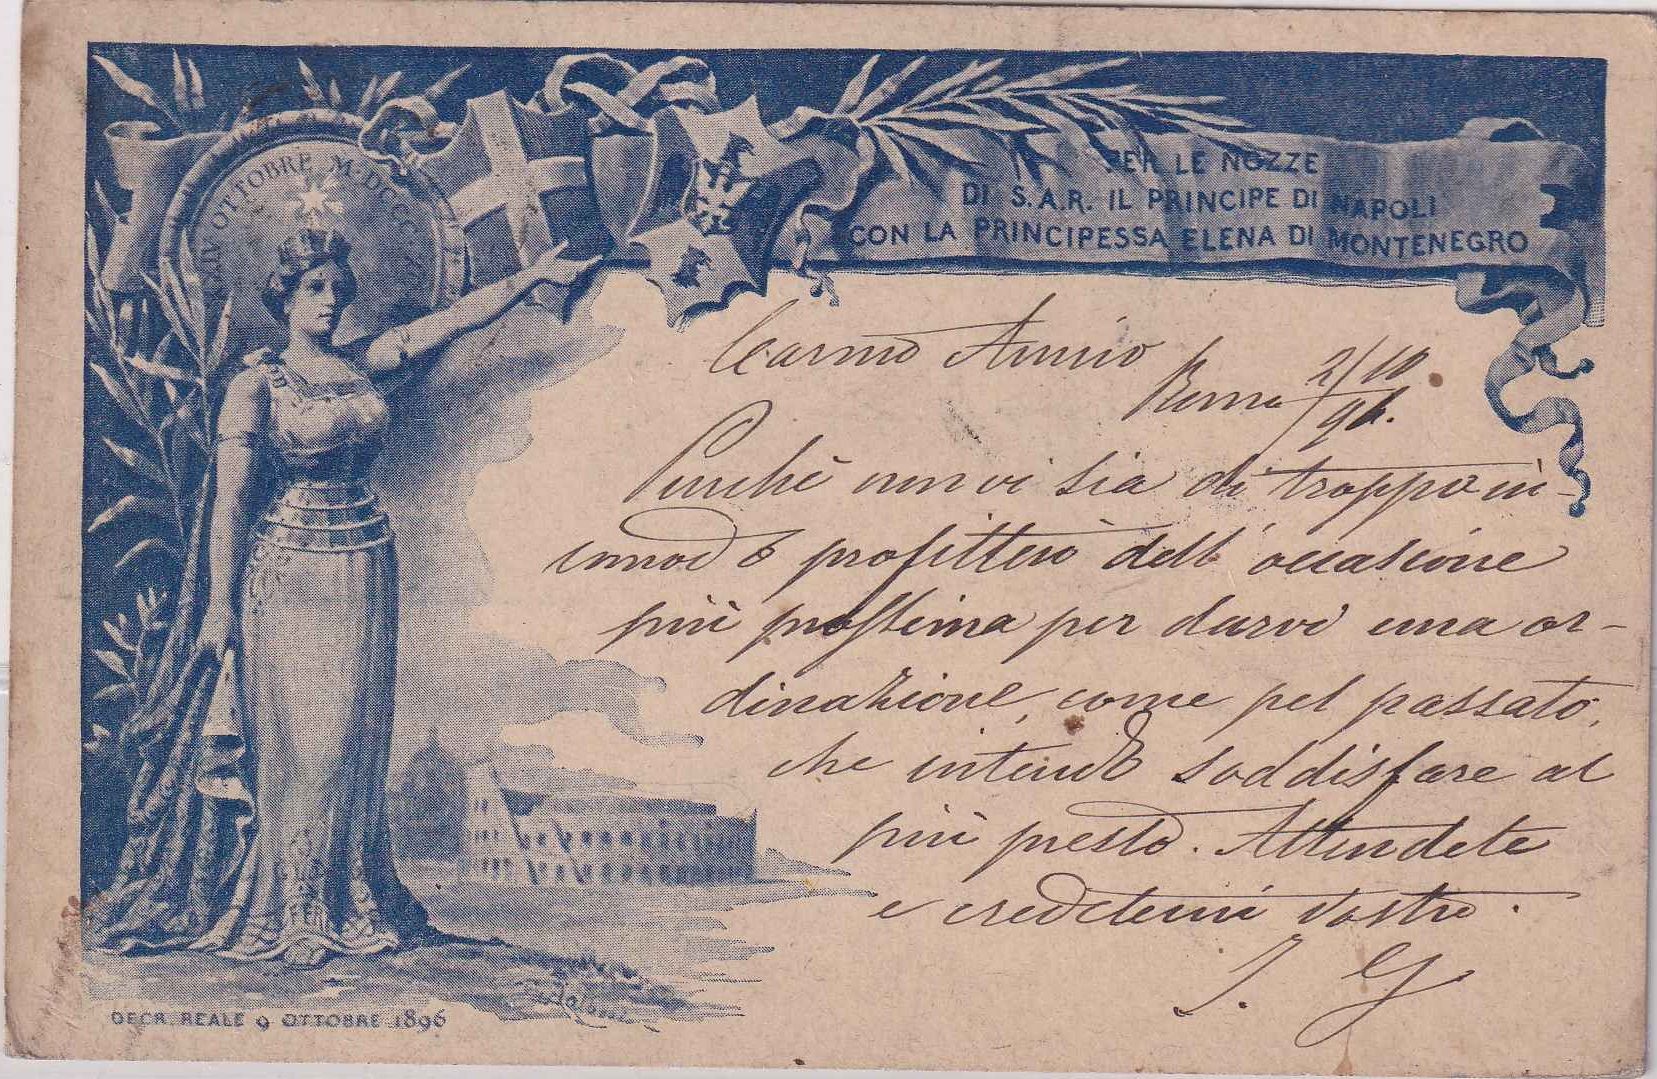 XXIV OTTOBRE M·DCCC·
PER LE NOZZE
DI S.A.R. IL PRINCIPE DI NAPOLI
CON LA PRINCIPESSA ELENA DI MONTENEGRO
Carmo Amico
Roma 2/10 96.
Purchè non vi sia di troppo in-
comodo profitterò dell'occasione
più prossima per darvi una or-
dinazione, come pel passato,
che intendo soddisfare al
più presto. Attendete
e credetemi vostro.
J. G
FERT
DECR. REALE 9 OTTOBRE 1896